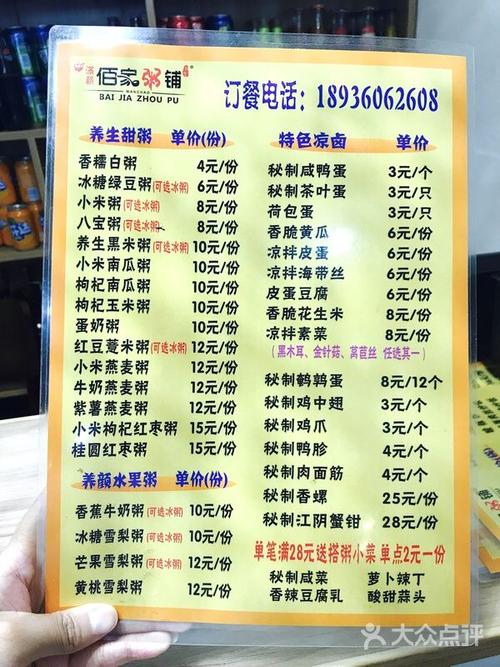 满巷
佰家粥铺
MANCHAO
BAI JIA ZHOU PU
订餐电话：18936062608
养生甜粥 单价(份)
香糯白粥 4元/份
冰糖绿豆粥(可选冰粥) 6元/份
小米粥(可选冰粥) 8元/份
八宝粥(可选冰粥) 8元/份
养生黑米粥(可选冰粥) 10元/份
小米南瓜粥 10元/份
枸杞南瓜粥 10元/份
枸杞玉米粥 10元/份
蛋奶粥 10元/份
红豆薏米粥(可选冰粥) 12元/份
小米燕麦粥 12元/份
牛奶燕麦粥 12元/份
紫薯燕麦粥 12元/份
小米枸杞红枣粥 15元/份
桂圆红枣粥 15元/份
养颜水果粥 单价(份)
香蕉牛奶粥(可选冰粥) 10元/份
冰糖雪梨粥(可选冰粥) 10元/份
芒果雪梨粥(可选冰粥) 12元/份
黄桃雪梨粥 12元/份
特色凉卤 单价
秘制咸鸭蛋 3元/个
秘制茶叶蛋 3元/只
荷包蛋 3元/只
香脆黄瓜 6元/份
凉拌皮蛋 6元/份
凉拌海带丝 6元/份
皮蛋豆腐 6元/份
香脆花生米 8元/份
凉拌素菜 8元/份
(黑木耳、金针菇、莴苣丝 任选其一)
秘制鹌鹑蛋 8元/12个
秘制鸡中翅 3元/个
秘制鸡爪 3元/个
秘制鸭胗 4元/个
秘制肉面筋 4元/个
秘制香螺 25元/份
秘制江阴蟹钳 28元/份
单笔满28元送搭粥小菜 单点2元一份
秘制咸菜 萝卜辣丁
香辣豆腐乳 酸甜蒜头
大众点评